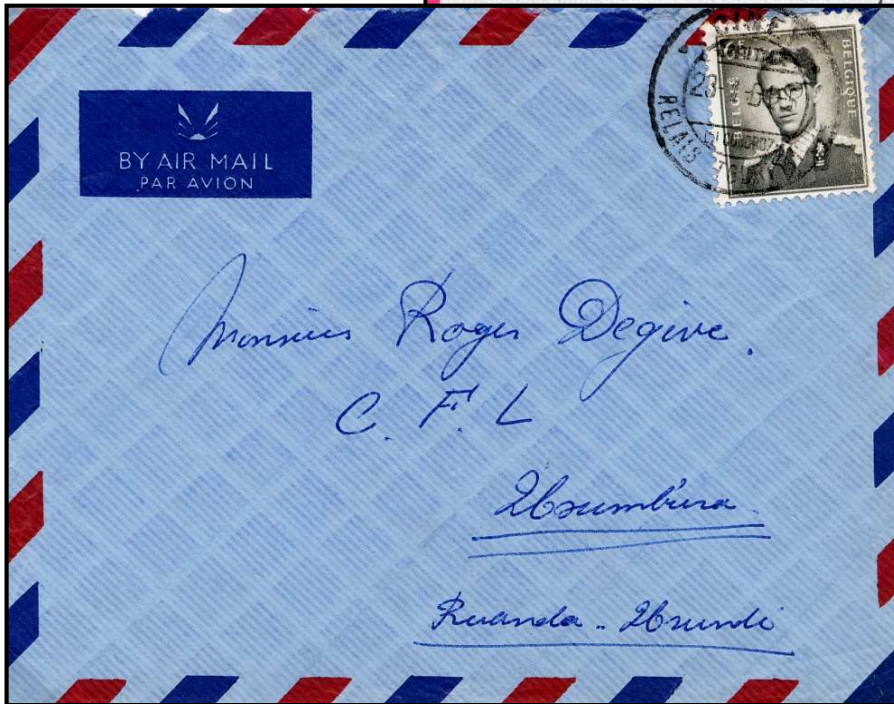 BY AIR MAIL
PAR AVION
RELAIS
BELGIE
BELGIQUE
Monsieur Roger Degive.
C. F. L
Usumbura
Ruanda-Urundi